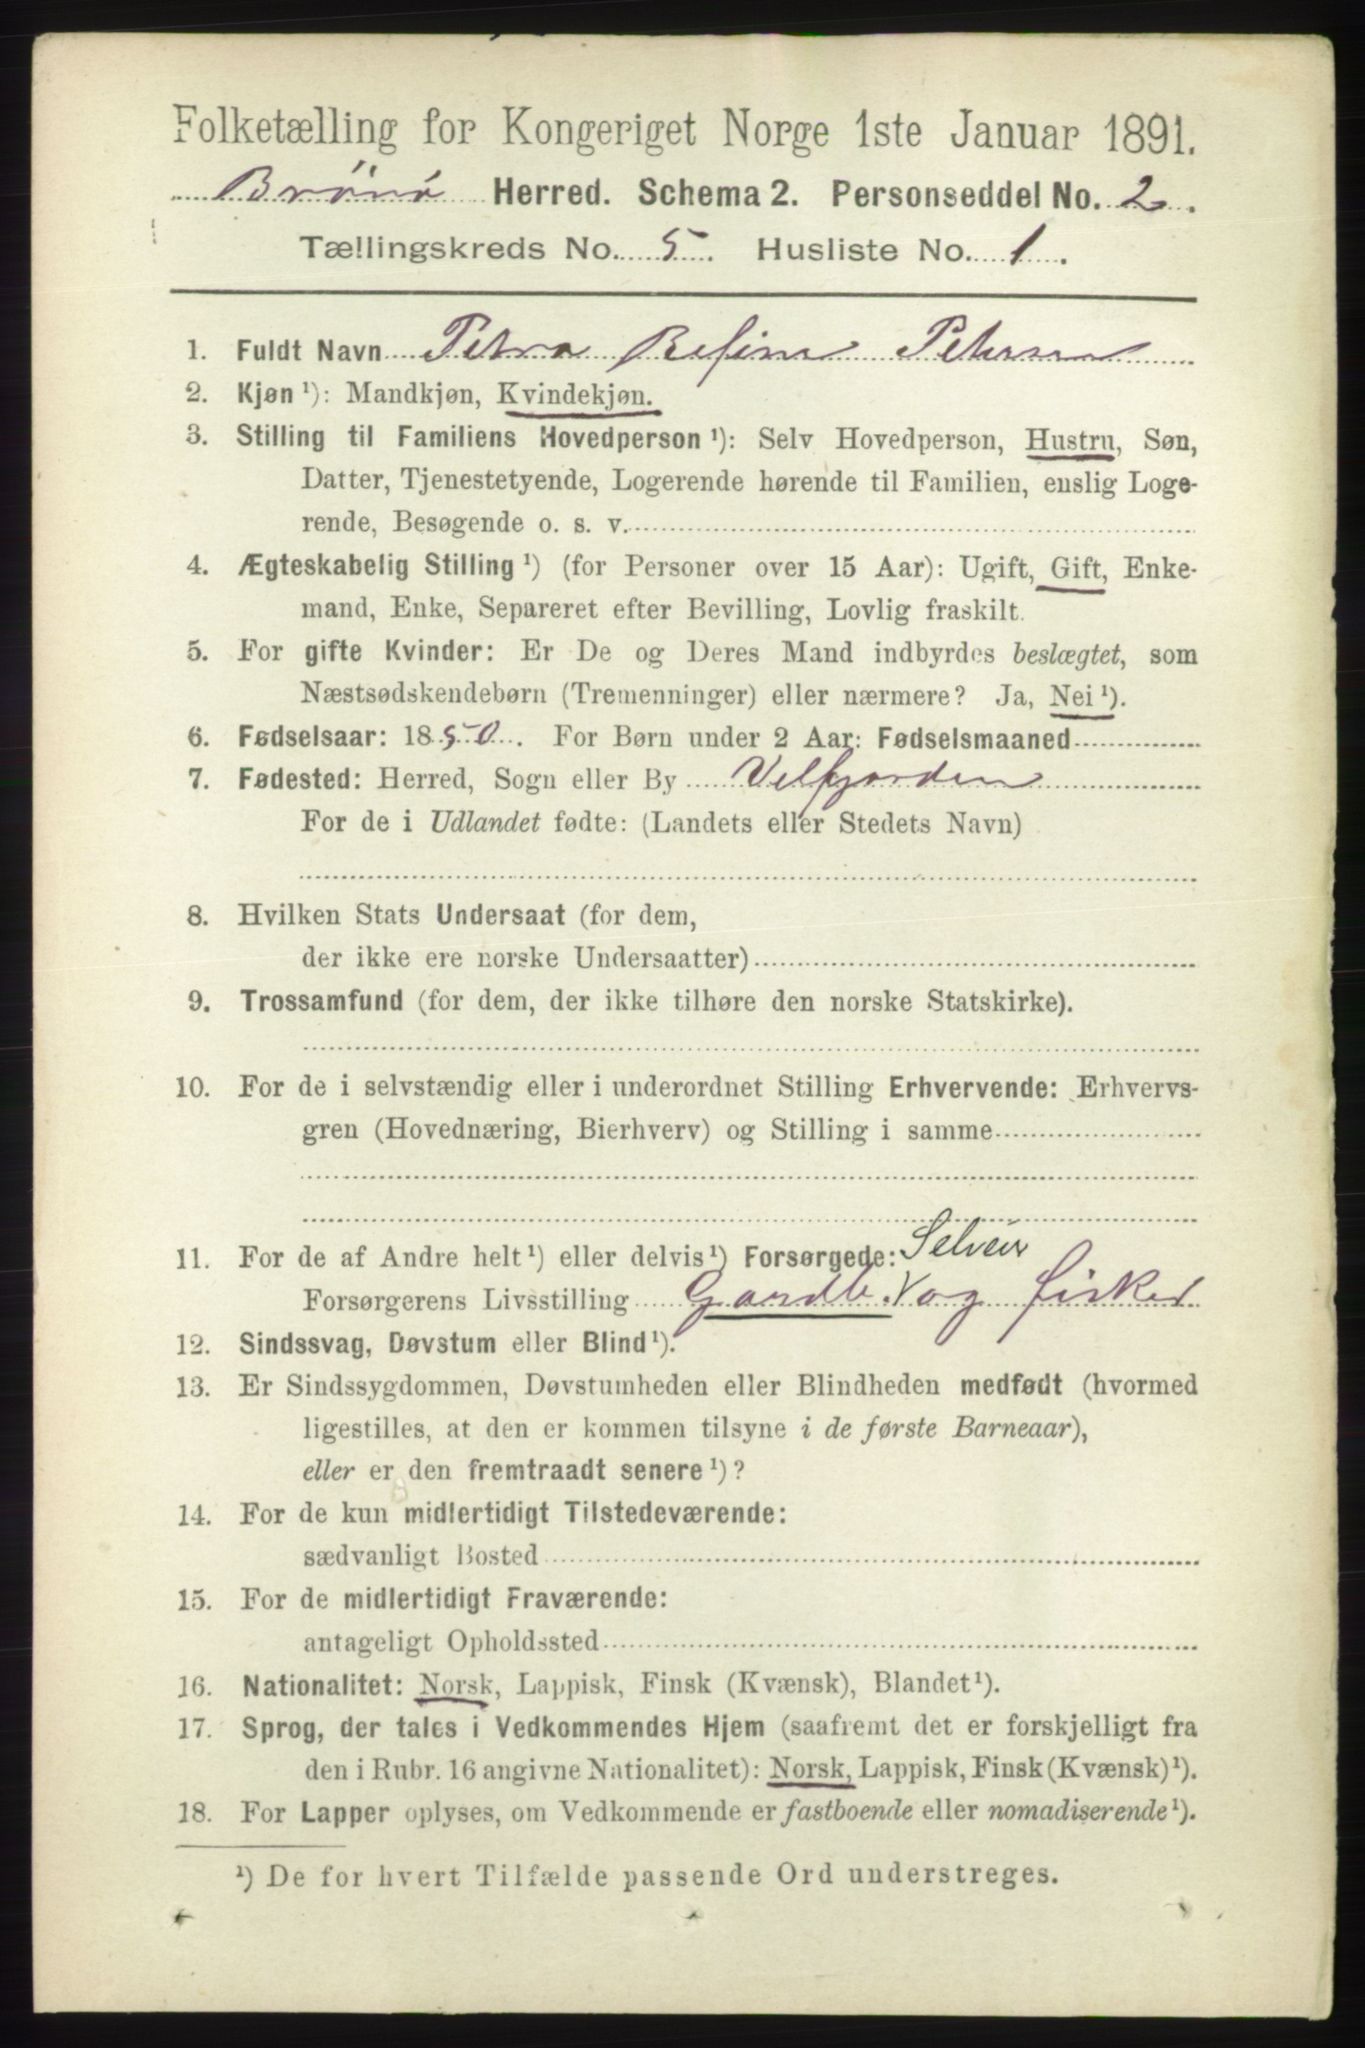 Folketælling for Kongeriget Norge 1ste Januar 1891.
Brönö Herred. Schema 2. Personseddel No. 2.
Tællingskreds No. 5. Husliste No. 1.
1. Fuldt Navn Petra Petersen
2. Kjøn ¹): Mandkjøn, Kvindekjøn.
3. Stilling til Familiens Hovedperson ¹): Selv Hovedperson, Hustru, Søn,
Datter, Tjenestetyende, Logerende hørende til Familien, enslig Loge-
rende, Besøgende o. s. v.
4. Ægteskabelig Stilling ¹) (for Personer over 15 Aar): Ugift, Gift, Enke-
mand, Enke, Separeret efter Bevilling, Lovlig fraskilt.
5. For gifte Kvinder: Er De og Deres Mand indbyrdes beslægtet, som
Næstsødskendebørn (Tremenninger) eller nærmere? Ja, Nei ¹).
6. Fødselsaar: 1850. For Børn under 2 Aar: Fødselsmaaned
7. Fødested: Herred, Sogn eller By Velfjorden
For de i Udlandet fødte: (Landets eller Stedets Navn)
8. Hvilken Stats Undersaat (for dem,
der ikke ere norske Undersaatter)
9. Trossamfund (for dem, der ikke tilhøre den norske Statskirke).
10. For de i selvstændig eller i underordnet Stilling Erhvervende: Erhvervs-
gren (Hovednæring, Bierhverv) og Stilling i samme
11. For de af Andre helt ¹) eller delvis ¹) Forsørgede: Selveier
Forsørgerens Livsstilling Gaardb. V og fisker
12. Sindssvag, Døvstum eller Blind ¹).
13. Er Sindssygdommen, Døvstumheden eller Blindheden medfødt (hvormed
ligestilles, at den er kommen tilsyne i de første Barneaar),
eller er den fremtraadt senere ¹)?
14. For de kun midlertidigt Tilstedeværende:
sædvanligt Bosted
15. For de midlertidigt Fraværende:
antageligt Opholdssted
16. Nationalitet: Norsk, Lappisk, Finsk (Kvænsk), Blandet ¹).
17. Sprog, der tales i Vedkommendes Hjem (saafremt det er forskjelligt fra
den i Rubr. 16 angivne Nationalitet): Norsk, Lappisk, Finsk (Kvænsk) ¹).
18. For Lapper oplyses, om Vedkommende er fastboende eller nomadiserende ¹).
¹) De for hvert Tilfælde passende Ord understreges.